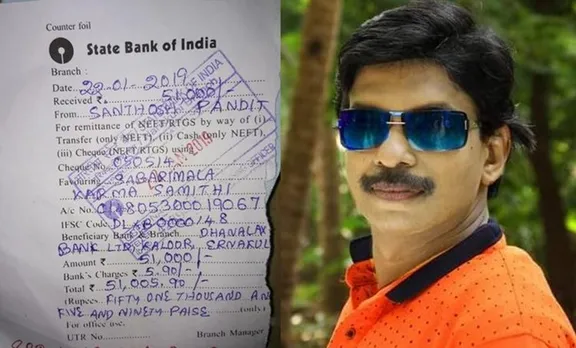 Counter foil
State Bank of India
Branch :
Date.. 22-01-2019
Received ₹ 51000/-
From.... SANTHOSH PANDIT
For remittance of NEFT/RTGS by way of (i)
Transfer (only NEFT), (ii) Cash (only NEFT),
(iii) Cheque (NEFT/RTGS) using
Cheque No 050514
Favouring SABARIMALA
KARMA SAMITHI
A/c No.
IFSC Code:
Beneficiary Bank & Branch.. DHANALAX
BANK LTD, KALOOR, ERNAKUL
Amount ₹ 51,000/-
Bank's Charges ₹ 5.90/-
Total ₹ 51,005.90/-
(Rupees. FIFTY ONE THOUSAND AN
FIVE AND NINETY PAISE (only)
For office use.
UTR No. Branch Manager